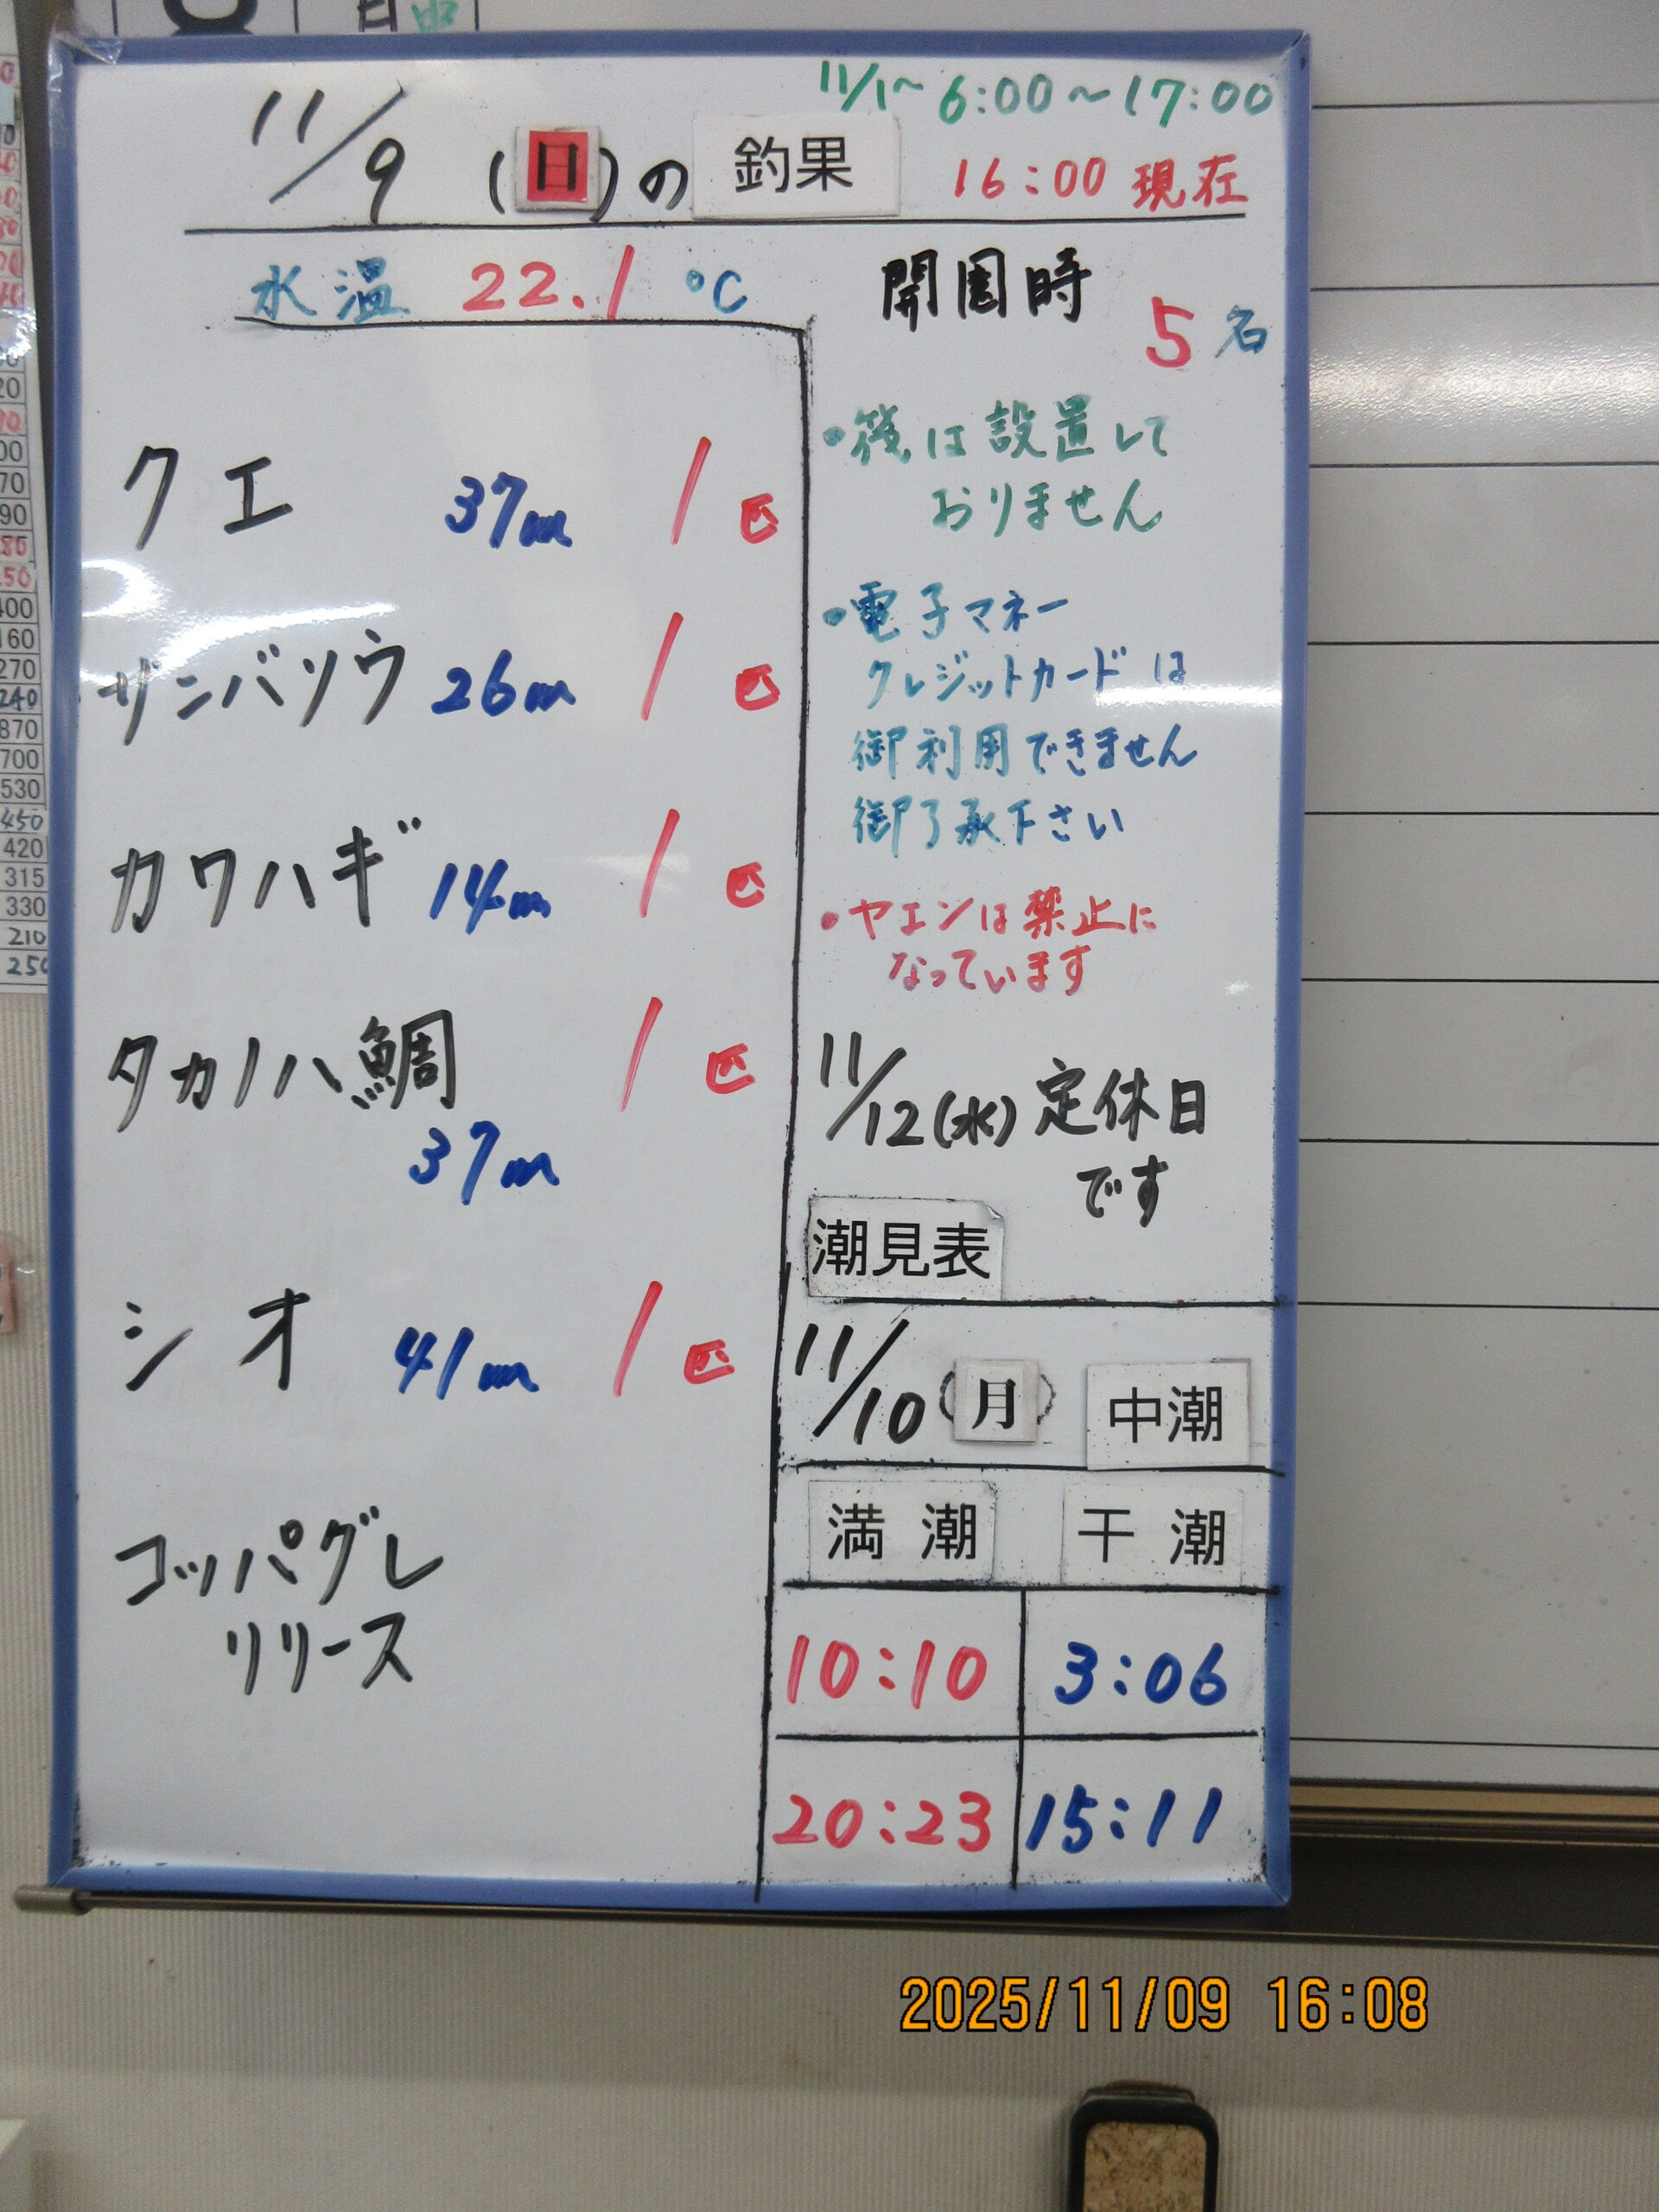 11/1〜 6:00〜17:00
11/9 (日)の 釣果 16:00 現在
水温 22.1 ℃
クエ 37cm 1匹
サンバソウ 26cm 1匹
カワハギ 14cm 1匹
タカノハ鯛 1匹
37cm
シオ 41cm 1匹
コッパグレ
リリース
開園時
5名
・筏は設置して
おりません
・電子マネー
クレジットカードは
御利用できません
御了承下さい
・ヤエンは禁止に
なっています
11/12(水)定休日
です
潮見表
11/10(月) 中潮
満潮 干潮
10:10 3:06
20:23 15:11
2025/11/09 16:08
870
700
530
450
420
315
330
210